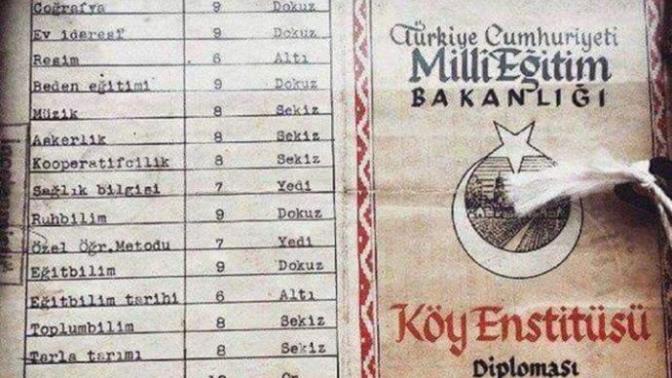 Coğrafya 9 Dokuz
Ev idaresi 9 Dokuz
Resim 6 Altı
Beden eğitimi 9 Dokuz
Müzik 8 Sekiz
Askerlik 8 Sekiz
Kooperatifcilik 8 Sekiz
Sağlık bilgisi 7 Yedi
Ruhbilim 9 Dokuz
Özel Öğr.Metodu 7 Yedi
Eğitbilim 9 Dokuz
Eğitbilim tarihi 6 Altı
Toplumbilim 8 Sekiz
Tarla tarımı 8 Sekiz
10 On
Türkiye Cumhuriyeti
Millî Eğitim
BAKANLIĞI
Köy Enstitüsü
Diploması